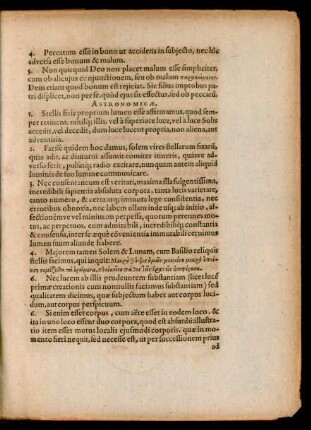 4. Peccatum esse in bono ut accidens in subjecto, nec hîc
adversa esse bonum & malum.
5. Non quicquid Deo non placet malum esse simpliciter,
cum ob alicujus conjunctionem, seu ob malum
Dein etiam quod bonum est rejiciat. Sic filius improbus pa-
tri displicet, non per se, quòd ejus sit effectus, sed ob peccatũ.
ASTRONOMICÆ.
1. Stellis fixis proprium lumen esse affirmamus, quod sem-
per retineant, nihilq; illis, vel à superiore luce, vel à luce Solis
accedit, vel decedit, dum luceant propria, non aliena, aut
adventitia.
2. Facilè quidem hoc damus, solem vires stellarum fixarũ,
quâs adit, ac diuturni assumit comites itineris, quàsve ad-
verso ferit, pulsatq; radio excitare, nunquam autem aliquid
luminis de suo lumine communicare.
3. Nec consentaneum est veritati, maxima illa fulgentissima,
incredibili sapientia absoluta corpora, tanta lucis varietate,
tanto numero, & certa atq; immota lege consistentia, nec
erroribus obnoxia, labem ullam inde usq; ab initio, af-
fectionémve vel minimum perpessa, quorum perennes mo-
tus, ac perpetuos, cum admirabili, incredibiliq; constantia
& consensu, inter se æquè convenientia immutabili certoq;
lumen suum habere ab aliis.
4. Majorem tamen Solem & Lunam, cum Basilio reliquis
stellis facimus, qui inquit:
6. Nec lucem ab illis prodeuntem substantiam (licet loco
primæ creationis cum nonnullis facimus substantiam) sed
qualitatem dicimus, quæ subjectum habet aut corpus luci-
dum, aut corpus perspicuum.
6. Si enim esset corpus, cum aëre esset in eodem loco, &
ita in uno loco essent duo corpora, quod est absurdũ: illustra-
tio item esset motus localis ejusmodi corporis, quæ in mo-
mento fieri nequit, sed necesse est, ut per successionem prius
ad